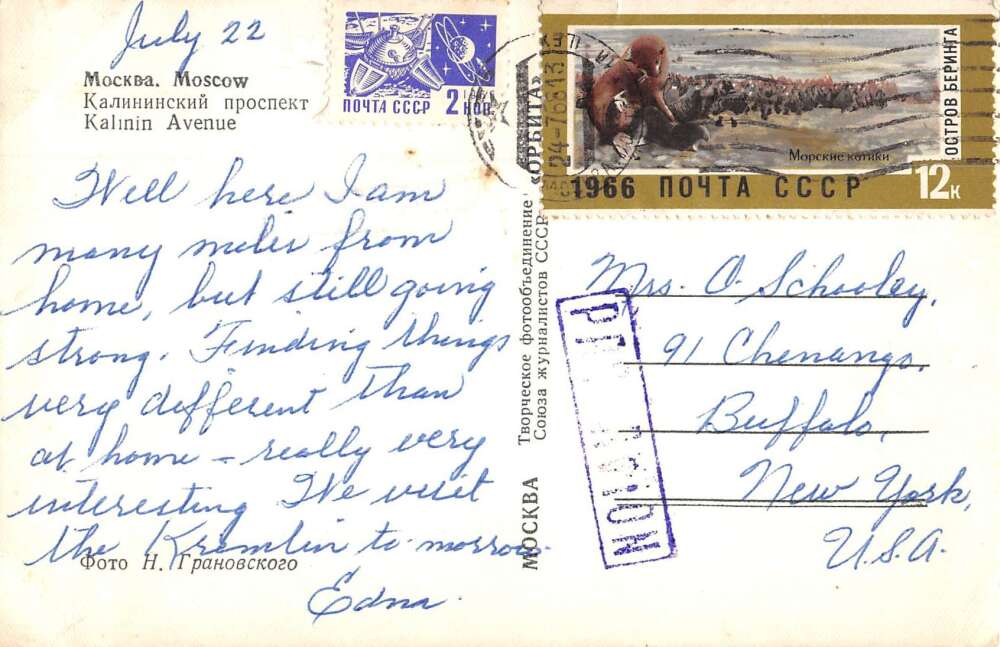 July 22
Москва. Moscow
Калининский проспект
Kalinin Avenue
ПОЧТА СССР 2 КОП.
1966 ПОЧТА СССР
Морские котики
12к
ОСТРОВ БЕРИНГА
Well here I am
many miles from
home, but still going
strong. Finding things
very different than
at home – really very
interesting We visit
the Kremlin to-morrow.
Edna.
Фото Н. Грановского
МОСКВА Творческое фотообъединение «ОРБИТА»
Союза журналистов СССР
Mrs. O. Schooley,
91 Chenango,
Buffalo,
New York,
U.S.A.